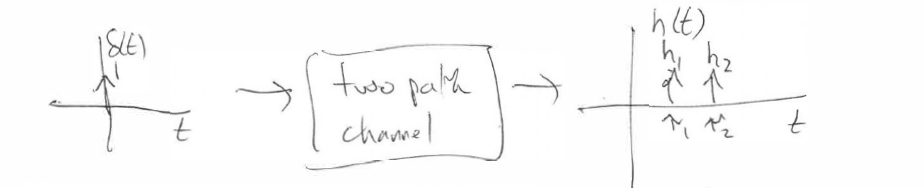 δ(t)
1
t
two path
channel
h(t)
h₁ h₂
τ₁ τ₂ t